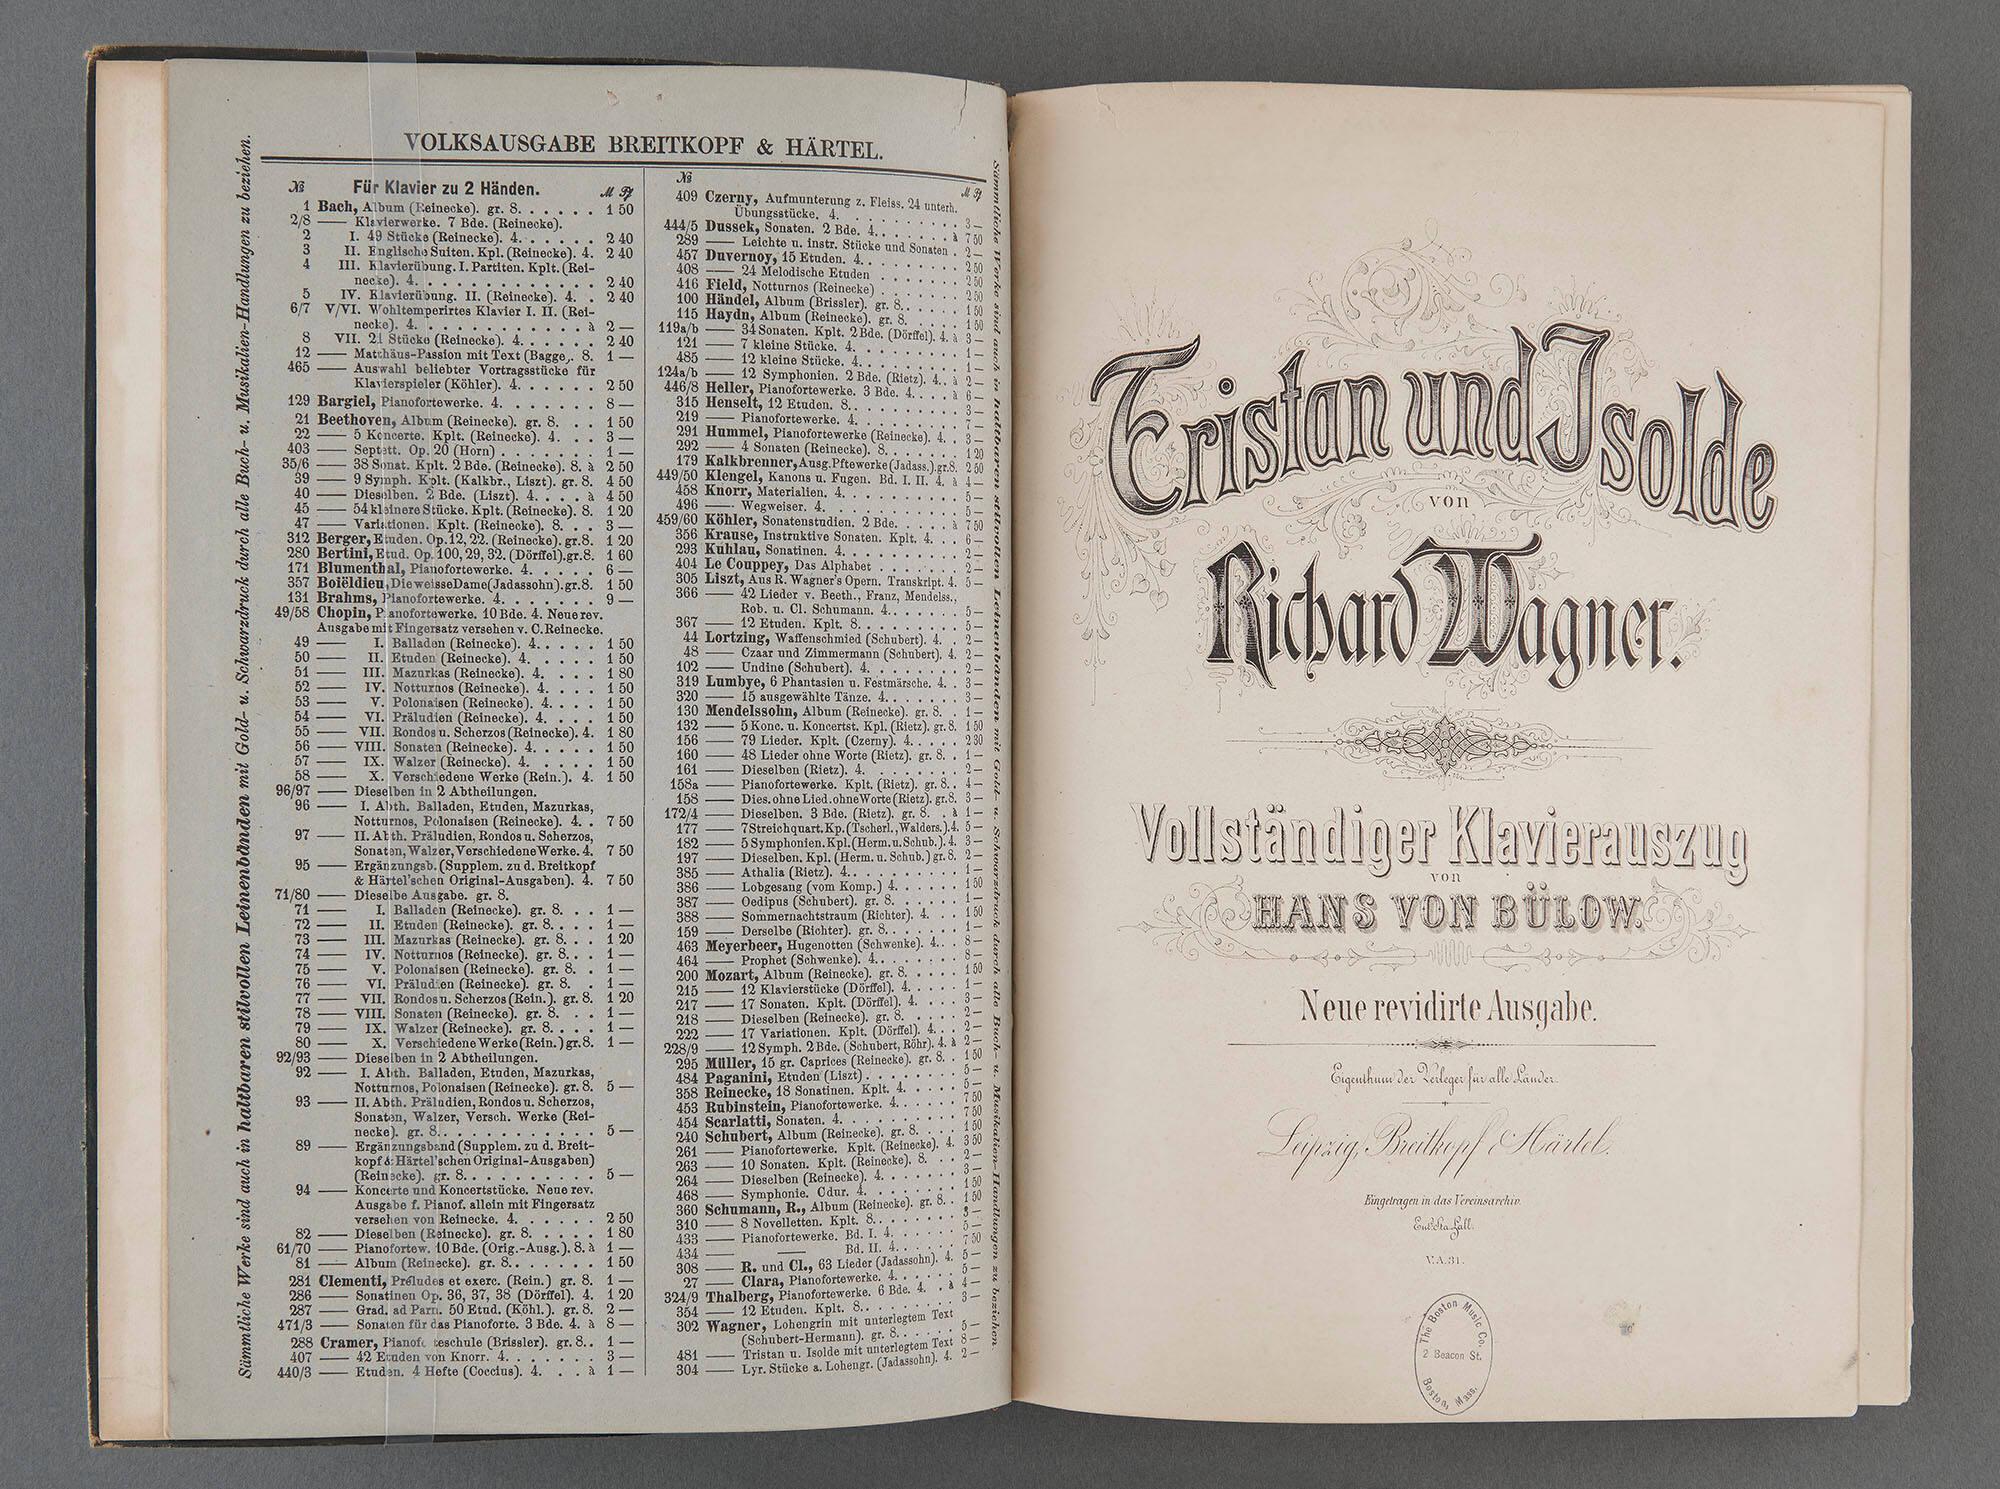 VOLKSAUSGABE BREITKOPF & HÄRTEL.
Sämmtliche Werke sind auch in haltbaren stilvollen Leinenbänden mit Gold- u. Schwarzdruck durch alle Buch- u. Musikalien-Handlungen zu beziehen.
№ Für Klavier zu 2 Händen. M Pf
1 Bach, Album (Reinecke). gr. 8. . . . . . 1 50
2/8 —— Klavierwerke. 7 Bde. (Reinecke).
2 I. 49 Stücke (Reinecke). 4. . . . . . 2 40
3 II. Englische Suiten. Kpl. (Reinecke). 4. 2 40
4 III. Klavierübung. I. Partiten. Kplt. (Rei-
necke). 4. . . . . . . . . . . . . 2 40
5 IV. Klavierübung. II. (Reinecke). 4. . 2 40
6/7 V/VI. Wohltemperirtes Klavier I. II. (Rei-
necke). 4. . . . . . . . . . . . à 2 —
8 VII. 21 Stücke (Reinecke). 4. . . . . . 2 40
12 —— Matthäus-Passion mit Text (Bagge). 8. 1 —
465 —— Auswahl beliebter Vortragsstücke für
Klavierspieler (Köhler). 4. . . . . . 2 50
129 Bargiel, Pianofortewerke. 4. . . . . . . 8 —
21 Beethoven, Album (Reinecke). gr. 8. . . . 1 50
22 —— 5 Koncerte. Kplt. (Reinecke). 4. . . . 3 —
403 —— Septett. Op. 20 (Horn) . . . . . . . 1 —
35/6 —— 38 Sonat. Kplt. 2 Bde. (Reinecke). 8. à 2 50
39 —— 9 Symph. Kplt. (Kalkbr., Liszt). gr. 8. 4 50
40 —— Dieselben. 2 Bde. (Liszt). 4. . . . à 4 50
45 —— 54 kleinere Stücke. Kplt. (Reinecke). 8. 1 20
47 —— Variationen. Kplt. (Reinecke). 8. . . 3 —
312 Berger, Etuden. Op. 12, 22. (Reinecke). gr. 8. 1 20
280 Bertini, Etud. Op. 100, 29, 32. (Dörffel). gr. 8. 1 60
171 Blumenthal, Pianofortewerke. 4. . . . . . 6 —
357 Boiëldieu, Die weisse Dame (Jadassohn). gr. 8. 1 50
131 Brahms, Pianofortewerke. 4. . . . . . . 9 —
49/58 Chopin, Pianofortewerke. 10 Bde. 4. Neue rev.
Ausgabe mit Fingersatz versehen v. C. Reinecke.
49 —— I. Balladen (Reinecke). 4. . . . . 1 50
50 —— II. Etuden (Reinecke). 4. . . . . 1 50
51 —— III. Mazurkas (Reinecke). 4. . . . 1 80
52 —— IV. Notturnos (Reinecke). 4. . . . 1 50
53 —— V. Polonaisen (Reinecke). 4. . . . 1 50
54 —— VI. Präludien (Reinecke). 4. . . . 1 50
55 —— VII. Rondos u. Scherzos (Reinecke). 4. 1 80
56 —— VIII. Sonaten (Reinecke). 4. . . . . 1 50
57 —— IX. Walzer (Reinecke). 4. . . . . . 1 50
58 —— X. Verschiedene Werke (Rein.). 4. 1 50
96/97 —— Dieselben in 2 Abtheilungen.
96 —— I. Abth. Balladen, Etuden, Mazurkas,
Notturnos, Polonaisen (Reinecke). 4. . 7 50
97 —— II. Abth. Präludien, Rondos u. Scherzos,
Sonaten, Walzer, Verschiedene Werke. 4. 7 50
95 —— Ergänzungsb. (Supplem. zu d. Breitkopf
& Härtel'schen Original-Ausgaben). 4. 7 50
71/80 —— Dieselbe Ausgabe. gr. 8.
71 —— I. Balladen (Reinecke). gr. 8. . . 1 —
72 —— II. Etuden (Reinecke). gr. 8. . . . 1 —
73 —— III. Mazurkas (Reinecke). gr. 8. . . 1 20
74 —— IV. Notturnos (Reinecke). gr. 8. . . 1 —
75 —— V. Polonaisen (Reinecke). gr. 8. . 1 —
76 —— VI. Präludien (Reinecke). gr. 8. . 1 —
77 —— VII. Rondos u. Scherzos (Rein.). gr. 8. 1 20
78 —— VIII. Sonaten (Reinecke). gr. 8. . . . 1 —
79 —— IX. Walzer (Reinecke). gr. 8. . . . 1 —
80 —— X. Verschiedene Werke (Rein.) gr. 8. 1 —
92/93 —— Dieselben in 2 Abtheilungen.
92 —— I. Abth. Balladen, Etuden, Mazurkas,
Notturnos, Polonaisen (Reinecke). gr. 8. 5 —
93 —— II. Abth. Präludien, Rondos u. Scherzos,
Sonaten, Walzer, Versch. Werke (Rei-
necke). gr. 8. . . . . . . . . . . . 5 —
89 —— Ergänzungsband (Supplem. zu d. Breit-
kopf & Härtel'schen Original-Ausgaben)
(Reinecke). gr. 8. . . . . . . . . . 5 —
94 —— Koncerte und Koncertstücke. Neue rev.
Ausgabe f. Pianof. allein mit Fingersatz
versehen von Reinecke. 4. . . . . . 2 50
82 —— Dieselben (Reinecke). gr. 8. . . . . 1 80
61/70 —— Pianofortew. 10 Bde. (Orig.-Ausg.). 8. à 1 —
81 —— Album (Reinecke). gr. 8. . . . . . . 1 50
281 Clementi, Préludes et exerc. (Rein.) gr. 8. 1 —
286 —— Sonatinen Op. 36, 37, 38 (Dörffel). 4. 1 20
287 —— Grad. ad Parn. 50 Etud. (Köhl.). gr. 8. 2 —
471/3 —— Sonaten für das Pianoforte. 3 Bde. 4. à 8 —
288 Cramer, Pianoforteschule (Brissler). gr. 8. . 1 —
407 —— 42 Etuden von Knorr. 4. . . . . . . 3 —
440/3 —— Etuden. 4 Hefte (Coccius). 4. . . à 1 —
№ M Pf
409 Czerny, Aufmunterung z. Fleiss. 24 unterh.
Übungsstücke. 4. . . . . . . . . . 3 —
444/5 Dussek, Sonaten. 2 Bde. 4. . . . . . . à 7 50
289 —— Leichte u. instr. Stücke und Sonaten . 2 —
457 Duvernoy, 15 Etuden. 4. . . . . . . . 2 50
408 —— 24 Melodische Etuden . . . . . . . 2 50
416 Field, Notturnos (Reinecke) . . . . . . . 2 50
100 Händel, Album (Brissler). gr. 8. . . . . . 1 50
115 Haydn, Album (Reinecke). gr. 8. . . . . 1 50
119a/b —— 34 Sonaten. Kplt. 2 Bde. (Dörffel). 4. à 3 —
121 —— 7 kleine Stücke. 4. . . . . . . . . 1 —
485 —— 12 kleine Stücke. 4. . . . . . . . . 1 —
124a/b —— 12 Symphonien. 2 Bde. (Rietz). 4. . à 2 —
446/8 Heller, Pianofortewerke. 3 Bde. 4. . . . à 6 —
315 Henselt, 12 Etuden. 8. . . . . . . . . . 3 —
219 —— Pianofortewerke. 4. . . . . . . . . 7 —
291 Hummel, Pianofortewerke (Reinecke). 4. . 3 —
292 —— 4 Sonaten (Reinecke). 8. . . . . . . 1 20
179 Kalkbrenner, Ausg. Pftewerke (Jadass.). gr. 8. 2 50
449/50 Klengel, Kanons u. Fugen. Bd. I. II. 4. à 4 —
458 Knorr, Materialien. 4. . . . . . . . . . 5 —
496 —— Wegweiser. 4. . . . . . . . . . . 5 —
459/60 Köhler, Sonatenstudien. 2 Bde. . . . . à 7 50
356 Krause, Instruktive Sonaten. Kplt. 4. . . 6 —
293 Kuhlau, Sonatinen. 4. . . . . . . . . . 2 —
404 Le Couppey, Das Alphabet . . . . . . . 2 —
305 Liszt, Aus R. Wagner's Opern. Transkript. 4. 5 —
366 —— 42 Lieder v. Beeth., Franz, Mendelss.,
Rob. u. Cl. Schumann. 4. . . . . . . 5 —
367 —— 12 Etuden. Kplt. 8. . . . . . . . . 5 —
44 Lortzing, Waffenschmied (Schubert). 4. . 2 —
48 —— Czaar und Zimmermann (Schubert). 4. 2 —
102 —— Undine (Schubert). 4. . . . . . . . 2 —
319 Lumbye, 6 Phantasien u. Festmärsche. 4. . 3 —
320 —— 15 ausgewählte Tänze. 4. . . . . . . 3 —
130 Mendelssohn, Album (Reinecke). gr. 8. . 1 —
132 —— 5 Konc. u. Koncertst. Kpl. (Rietz). gr. 8. 1 50
156 —— 79 Lieder. Kplt. (Czerny). 4. . . . . 2 30
160 —— 48 Lieder ohne Worte (Rietz). gr. 8. . 1 —
161 —— Dieselben (Rietz). 4. . . . . . . . . 2 —
158a —— Pianofortewerke. Kplt. (Rietz). gr. 8. . 4 —
158 —— Dies. ohne Lied. ohne Worte (Rietz). gr. 8. 3 —
172/4 —— Dieselben. 3 Bde. (Rietz). gr. 8. . . à 1 —
177 —— 7 Streichquart. Kp. (Tscherl., Walders.). 4. 5 —
182 —— 5 Symphonien. Kpl. (Herm. u. Schub.). 4. 3 —
197 —— Dieselben. Kpl. (Herm. u. Schub.) gr. 8. 2 —
385 —— Athalia (Rietz). 4. . . . . . . . . . 1 —
386 —— Lobgesang (vom Komp.) 4. . . . . . 1 50
387 —— Oedipus (Schubert). gr. 8. . . . . . 1 —
388 —— Sommernachtstraum (Richter). 4. . . 1 50
159 —— Derselbe (Richter). gr. 8. . . . . . . 1 —
463 Meyerbeer, Hugenotten (Schwenke). 4. . . 8 —
464 —— Prophet (Schwenke). 4. . . . . . . . 8 —
200 Mozart, Album (Reinecke). gr. 8. . . . . 1 50
215 —— 12 Klavierstücke (Dörffel). 4. . . . . 1 —
217 —— 17 Sonaten. Kplt. (Dörffel). 4. . . . 3 —
218 —— Dieselben (Reinecke). gr. 8. . . . . . 2 —
222 —— 17 Variationen. Kplt. (Dörffel). 4. . . 2 —
228/9 —— 12 Symph. 2 Bde. (Schubert, Röhr). 4. à 2 —
295 Müller, 15 gr. Caprices (Reinecke). gr. 8. . 1 50
484 Paganini, Etuden (Liszt) . . . . . . . . 5 —
358 Reinecke, 18 Sonatinen. Kplt. 4. . . . . 5 —
453 Rubinstein, Pianofortewerke. 4. . . . . . 7 50
454 Scarlatti, Sonaten. 4. . . . . . . . . . 7 50
240 Schubert, Album (Reinecke). gr. 8. . . . . 1 50
261 —— Pianofortewerke. Kplt. (Reinecke). 4. 3 50
263 —— 10 Sonaten. Kplt. (Reinecke). 8. . . 2 —
264 —— Dieselben (Reinecke). 4. . . . . . . 3 —
468 —— Symphonie. Cdur. 4. . . . . . . . . 1 50
360 Schumann, R., Album (Reinecke). gr. 8. . 1 50
310 —— 8 Novelletten. Kplt. 8. . . . . . . . 3 —
433 —— Pianofortewerke. Bd. I. 4. . . . . . 5 —
434 —— —— Bd. II. 4. . . . . . 7 50
308 —— R. und Cl., 63 Lieder (Jadassohn). 4. 5 —
27 —— Clara, Pianofortewerke. 4. . . . . . 5 —
324/9 Thalberg, Pianofortewerke. 6 Bde. 4. . à 4 —
354 —— 12 Etuden. Kplt. 8. . . . . . . . . 3 —
302 Wagner, Lohengrin mit unterlegtem Text
(Schubert-Hermann). gr. 8. . . . . . 5 —
481 —— Tristan u. Isolde mit unterlegtem Text 8 —
304 —— Lyr. Stücke a. Lohengr. (Jadassohn). 4. 2 —
Sämmtliche Werke sind auch in haltbaren stilvollen Leinenbänden mit Gold- u. Schwarzdruck durch alle Buch- u. Musikalien-Handlungen zu beziehen.
Tristan und Isolde
von
Richard Wagner.
Vollständiger Klavierauszug
von
HANS VON BÜLOW.
Neue revidirte Ausgabe.
Eigenthum der Verleger für alle Länder.
Leipzig, Breitkopf & Härtel.
Eingetragen in das Vereinsarchiv.
Ent.d Sta. Hall.
V.A.31.
The Boston Music Co.
2 Beacon St.
Boston, Mass.